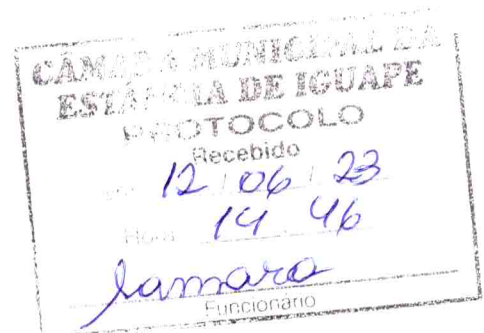 CÂMARA MUNICIPAL DA
ESTÂNCIA DE IGUAPE
PROTOCOLO
Recebido
12 / 06 / 23
Hora 14 46
Samara
Funcionário